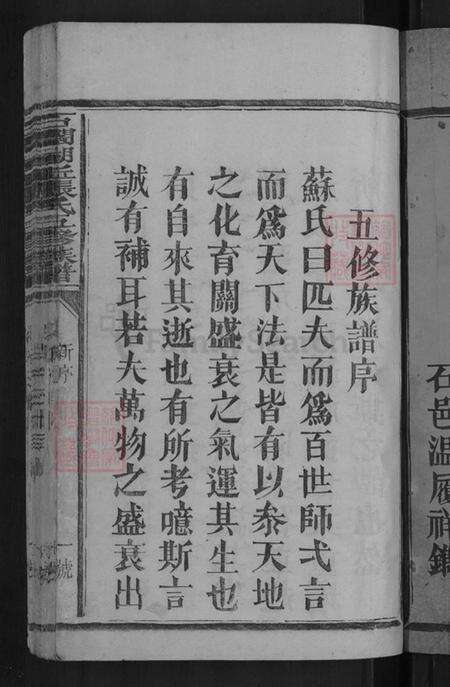 五修族譜序
蘇氏曰匹夫而爲百世師弌言
而爲天下法是皆有以叅天地
之化育關盛衰之氣運其生也
有自來其逝也有所考噫斯言
誠有補耳若夫萬物之盛衰出
張氏五修族譜
新序
一號
石邑温履祥鐫